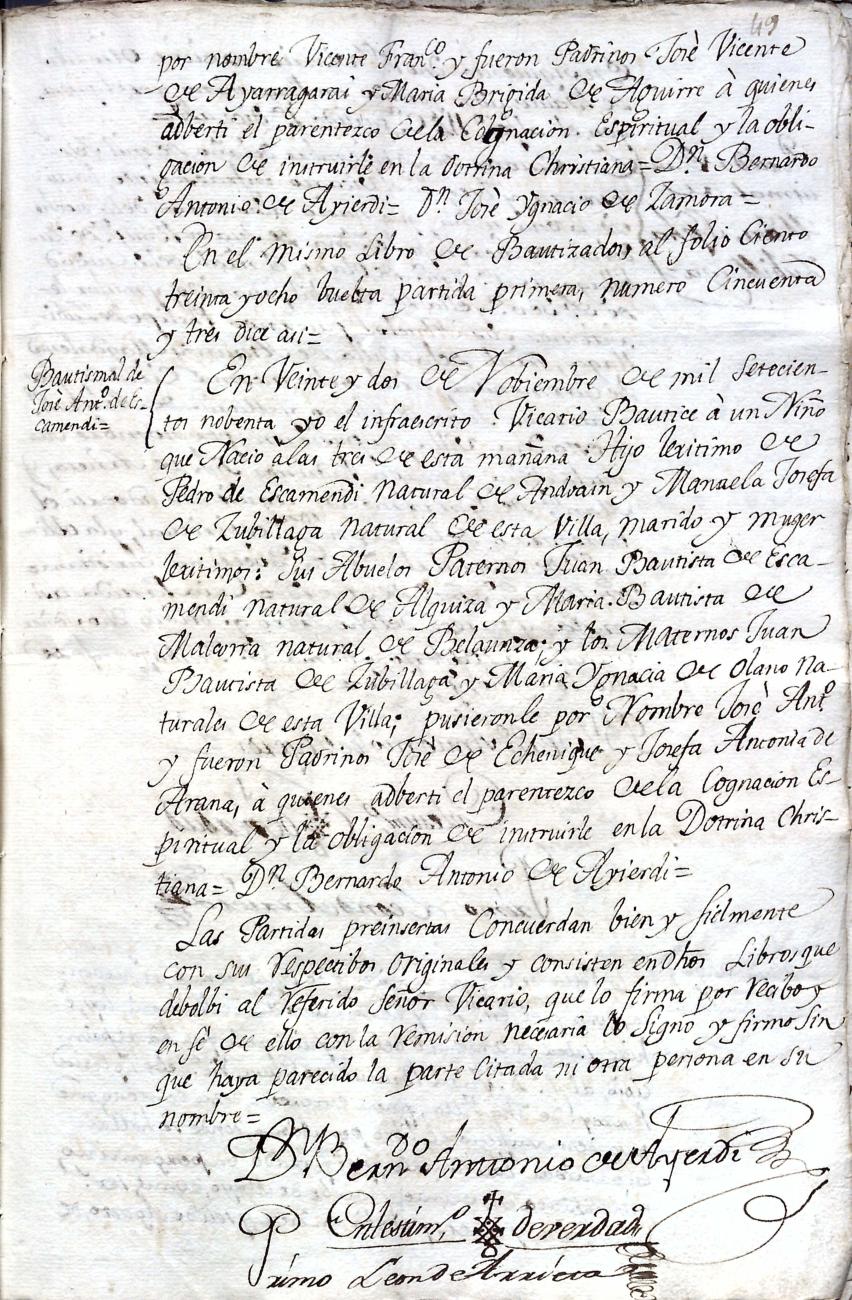 49
por nombre Vicente Fran.co y fueron Padrinos Josè Vicente
de Ayarragarai y Maria Brigida de Aguirre à quienes
adberti el parentezco de la Cognacion Espiritual y la obli-
gacion de instruirle en la Dotrina Christiana = Dn. Bernardo
Antonio de Ayierdi = Dn. Josè Ygnacio de Zamora =
En el mismo Libro de Bautizados al folio Ciento
treinta y ocho buelta partida primera, numero Cincuenta
y tres dice asi =
Bautismal de
Josè Ant.o de Es-
camendi =
En Veinte y dos de Nobiembre de mil Setecien-
tos nobenta yo el infraescrito Vicario Bautice à un Niño
que Nacio à las tres de esta mañana Hijo lexitimo de
Pedro de Escamendi Natural de Andoain y Manuela Josefa
de Zubillaga natural de esta Villa, marido y muger
lexitimos: sus Abuelos Paternos Juan Bautista de Esca-
mendi natural de Alquiza y Maria Bautista de
Malcorra natural de Belaunza; y los Maternos Juan
Bautista de Zubillaga y Maria Ygnacia de Olano Na-
turales de esta Villa; pusieronle por Nombre Josè Ant.o
y fueron Padrinos Josè de Echenique y Josefa Antonia de
Arana, à quienes adberti el parentezco de la Cognacion Es-
piritual y la obligacion de instruirle en la Dotrina Chris-
tiana = Dn. Bernardo Antonio de Ayierdi =
Las Partidas preinsertas Concuerdan bien y fielmente
con sus respectibos originales y consisten en dhos Libros que
debolbi al referido Señor Vicario, que lo firma por recibo y
en fè de ello con la remision necesaria lo Signo y firmo sin
que haya parecido la parte Citada ni otra persona en su
nombre =
Dn. Berndo Antonio de Ayerdi
En testim.o de verdad
Primo Leon de Arrieta